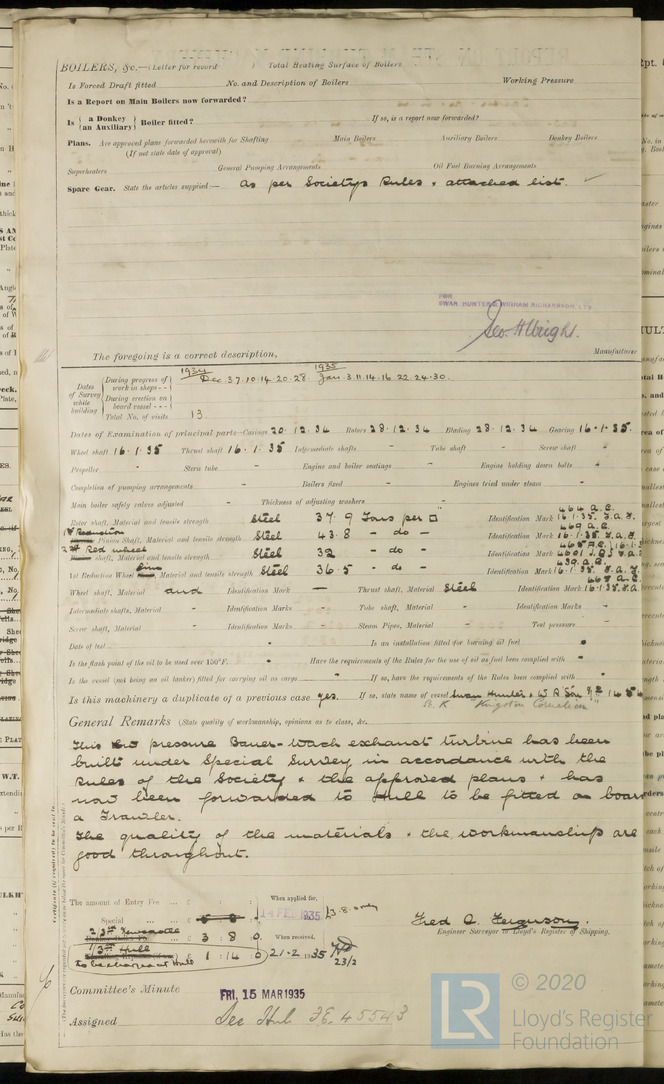 BOILERS, &c.—(Letter for record ) Total Heating Surface of Boilers
Is Forced Draft fitted No. and Description of Boilers Working Pressure
Is a Report on Main Boilers now forwarded?
Is { a Donkey / an Auxiliary } Boiler fitted? If so, is a report now forwarded?
Plans. Are approved plans forwarded herewith for Shafting Main Boilers Auxiliary Boilers Donkey Boilers
(If not state date of approval)
Superheaters General Pumping Arrangements Oil Fuel Burning Arrangements
Spare Gear. State the articles supplied:— As per Societys Rules & attached list.
FOR
SWAN, HUNTER & WIGHAM RICHARDSON, LTD
Geo. H Wright.
The foregoing is a correct description, Manufacturer
1934 1935
Dates of Survey while building
During progress of work in shops - - Dec. 3.7.10.14.20.28. Jan. 3.11.14.16 22.24.30.
During erection on board vessel - - -
Total No. of visits 13
Dates of Examination of principal parts—Casings 20.12.34 Rotors 28.12.34 Blading 28.12.34 Gearing 16.1.35.
Wheel shaft 16.1.35 Thrust shaft 16.1.35 Intermediate shafts - Tube shaft - Screw shaft -
Propeller - Stern tube - Engine and boiler seatings - Engine holding down bolts -
Completion of pumping arrangements - Boilers fixed - Engines tried under steam -
Main boiler safety valves adjusted - Thickness of adjusting washers
Rotor shaft, Material and tensile strength Steel 37.9 Tons per □" Identification Mark 16.1.35.
1st Reduction Pinion Shaft, Material and tensile strength Steel 43.8 - do - Identification Mark 16.1.35.
2nd Red wheel shaft, Material and tensile strength Steel 32 - do - Identification Mark
1st Reduction Wheel Material and tensile strength Steel 36.5 - do - Identification Mark 16.1.35.
Wheel shaft, Material and Identification Mark — Thrust shaft, Material Steel Identification Mark 16.1.35.
Intermediate shafts, Material - Identification Marks - Tube shaft, Material - Identification Marks -
Screw shaft, Material - Identification Marks - Steam Pipes, Material - Test pressure -
Date of test - Is an installation fitted for burning oil fuel -
Is the flash point of the oil to be used over 150°F. - Have the requirements of the Rules for the use of oil as fuel been complied with -
Is the vessel (not being an oil tanker) fitted for carrying oil as cargo - If so, have the requirements of the Rules been complied with -
Is this machinery a duplicate of a previous case yes. If so, state name of vessel Swan Hunter & W R Son
S.K "Kingston Cornelian"
General Remarks (State quality of workmanship, opinions as to class, &c.
This low pressure Bauer-Wach exhaust turbine has been
built under Special Survey in accordance with the
Rules of the Society & the approved plans & has
now been forwarded to Hull to be fitted on board
a Trawler.
The quality of the materials & the workmanship are
good throughout.
The amount of Entry Fee ... £ : : When applied for,
Special ... £ 14 FEB 1935
2/3rds Newcastle £ 3 : 8 : 0 When received,
1/3rd Hull £ 1 : 14 : 0 21.2.1935
to be charged at Hull 23/2
Fred C. Ferguson.
Engineer Surveyor to Lloyd's Register of Shipping.
Committee's Minute FRI. 15 MAR 1935
Assigned See Hul F.E. 45543
© 2020
LR
Lloyd's Register
Foundation